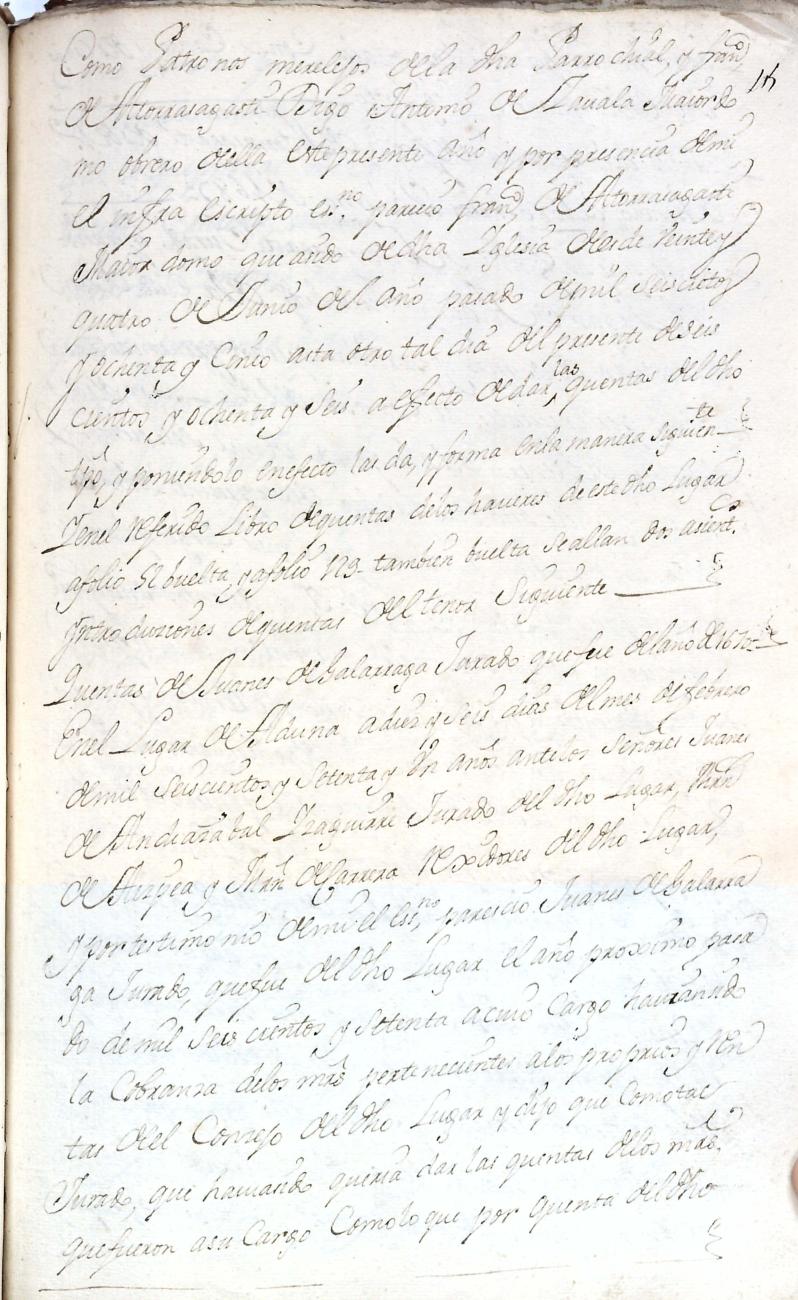 Como Patronos merelejos de la dha Parrochial, y fran.co
14
de Atorrasagasti Digo Antonio de Zavala Maiordo
mo obrero della este presente año y por presencia de mi
el infra escripto es.no parecio fran.co de Atorrasagasti
Maiordomo que a sido de dha Yglesia desde veinte y
quatro de Junio del año pasado de mil seiscientos
y ochenta y Cinco asta otro tal dia del presente de seis
cientos y ochenta y seis a efecto de dar las quentas del dho
tpõ, y poniendolo en efecto las da, y forma en la manera siguien.te
Y en el referido Libro de quentas de los haveres de este dho Lugar
a folio 52 buelta, y a folio 129 tambien buelta se allan dos asient.os
Yntroduziones de quentas del tenor siguiente
Quentas de Juanes de Galarraga Jurado que fue del año de 1670
En el Lugar de Alduna a diez y seis dias del mes de febrero
de mil seiscientos y setenta y Un años ante los Señores Juanes
de Andiazabal Yzaguirre Jurado del dho Lugar, Mrn
de Aizpea y Mrn de Larrera rexidores del dho Lugar,
y por testimonio de mi el es.no parescio Juanes de Galarra
ga Jurado, que fue del dho Lugar el año proximo pasa
do de mil seis cientos y setenta a cuio Cargo havia sido
la Cobranza de los mrs pertenecientes a los proprios y ren
tas del Concejo del dho Lugar y dijo que como tal
Jurado, que havia sido queria dar las quentas de los mrs
que fueron a su Cargo Como lo que por quenta del dho